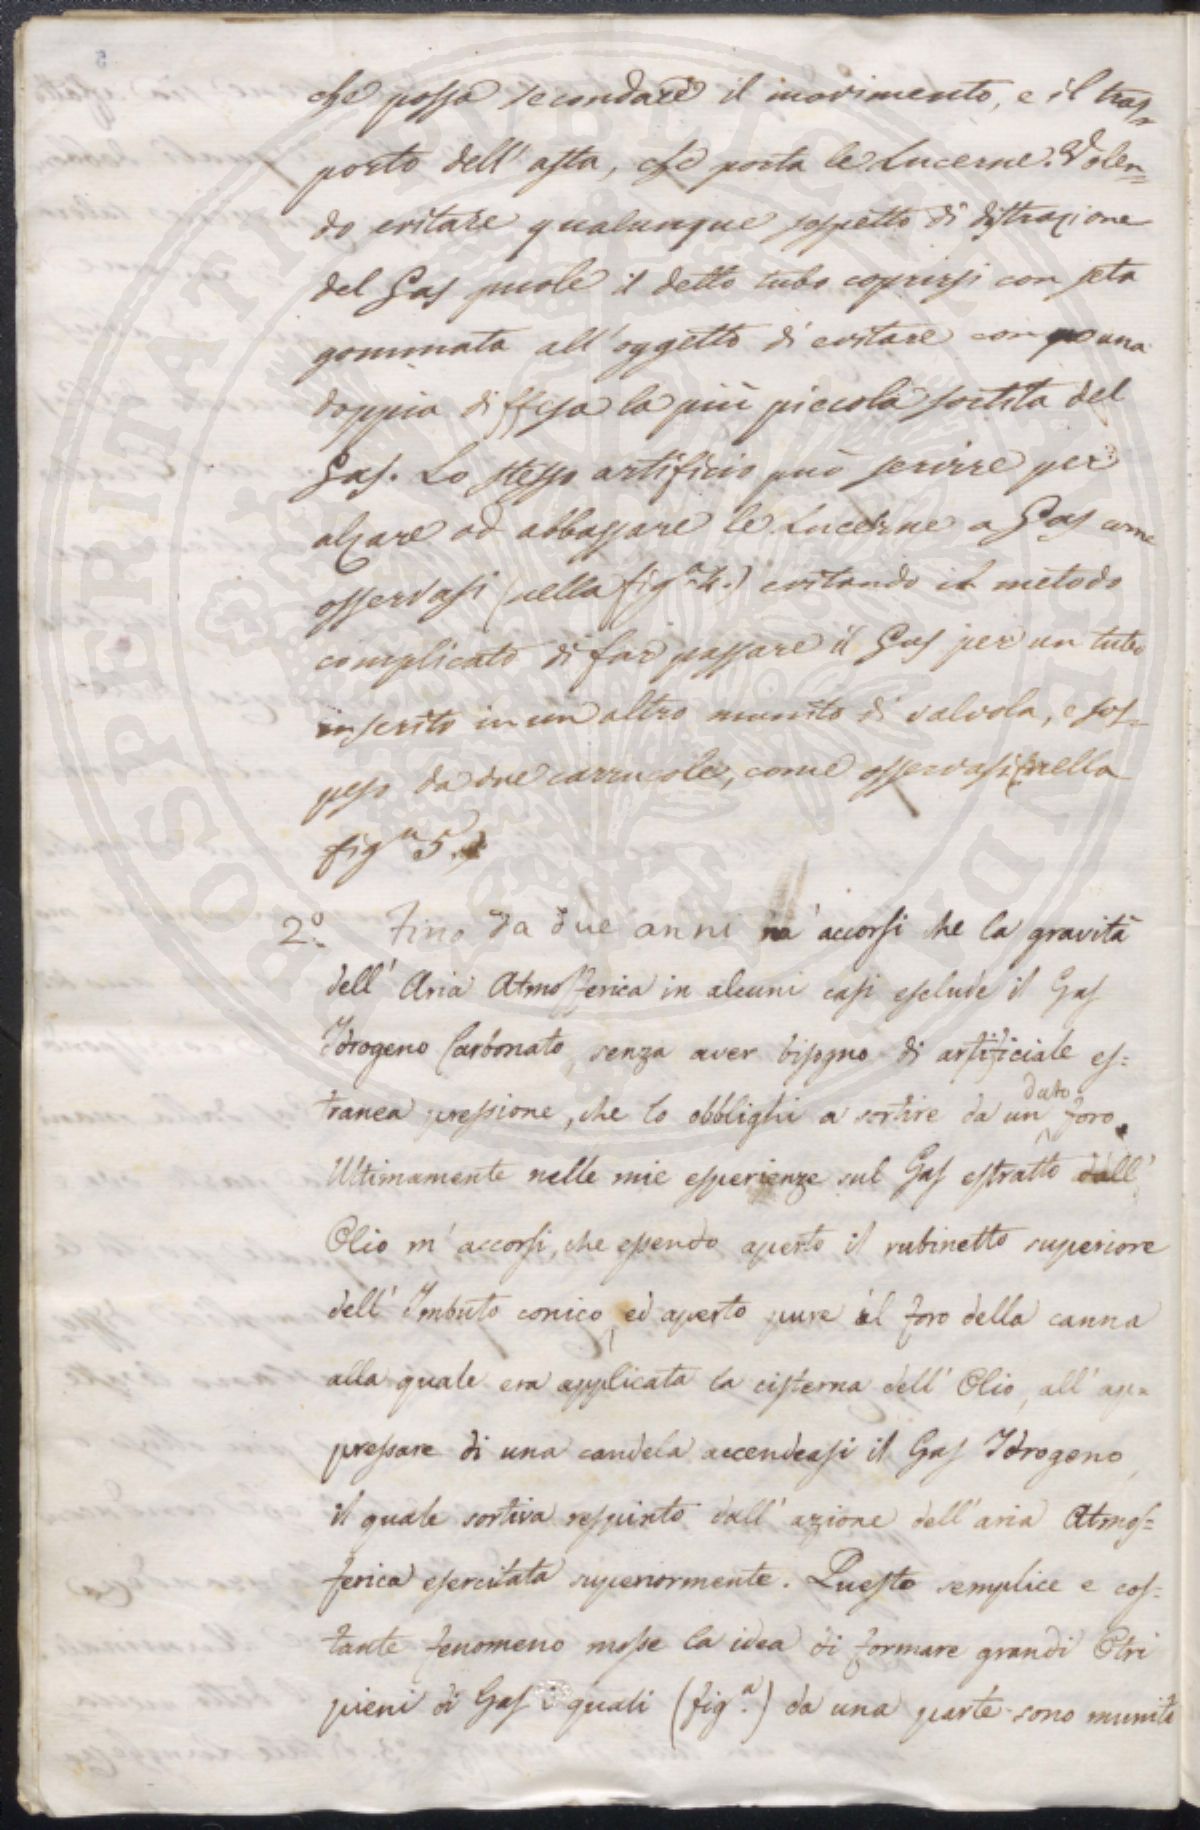 che possa secondare il movimento, e il tras=
porto dell' asta, che porta le Lucerne. Volen=
do evitare qualunque sospetto di distrazione
del Gas puole il detto tubo coprirsi con seta
gommata all' oggetto di evitare con una
doppia diffesa la più piccola sortita del
Gas. Lo stesso artificio può servire per
alzare od abbassare le Lucerne a Gas come
osservasi (nella fig.ª 4.) evitando il metodo
complicato di far passare il Gas per un tubo
inserito in un altro munito di valvola, e sos=
peso da due carrucole, come osservasi (nella
fig.ª 5.)
2.º Fino da due anni m' accorsi che la gravità
dell' Aria Atmosferica in alcuni casi esclude il Gas
Idrogeno Carbonato, senza aver bisogno di artificiale es=
tranea pressione, che lo obblighi a sortire da un dato foro.
Ultimamente nelle mie esperienze sul Gas estratto dall'
Olio m' accorsi, che essendo aperto il rubinetto superiore
dell' Imbuto conico, ed aperto pure il foro della canna
alla quale era applicata la cisterna dell' Olio, all' ap=
pressare di una candela accendeasi il Gas Idrogeno,
il quale sortiva respinto dall' azione dell' aria Atmos=
ferica esercitata superiormente. Questo semplice e cos=
tante fenomeno mosse la idea di formare grandi Otri
pieni di Gas i quali (fig.ª) da una parte sono muniti
PROSPERITATI PUBLICAE